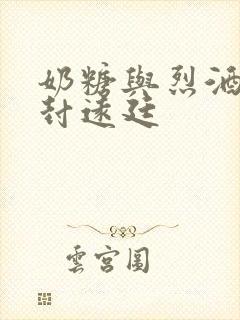 奶糖與烈酒
封遠廷
雲宮圖